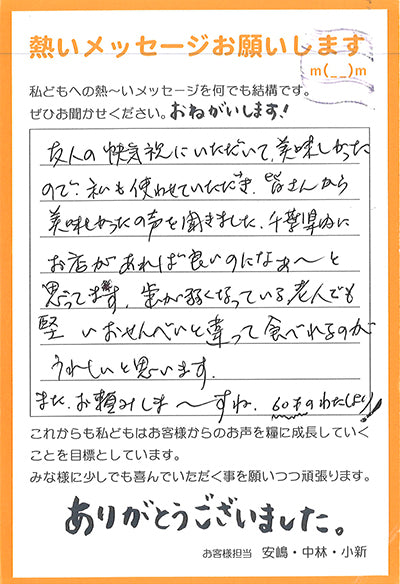 熱いメッセージお願いします
m(__)m
私どもへの熱〜いメッセージを何でも結構です。
ぜひお聞かせください。おねがいします!
友人の快気祝にいただいて、美味しかった
ので、私も使わせていただき、皆さんから
美味しかったの声を聞きました。千葉県内に
お店があれば良いのになぁ〜と
思ってます。歯が弱くなっている老人でも
堅いおせんべいと違って食べれるのが
うれしいと思います。
また、お頼みしま〜すね。60才のわたし(より)!
これからも私どもはお客様からのお声を糧に成長していく
ことを目標としています。
みな様に少しでも喜んでいただく事を願いつつ頑張ります。
ありがとうございました。
お客様担当 安嶋・中林・小新